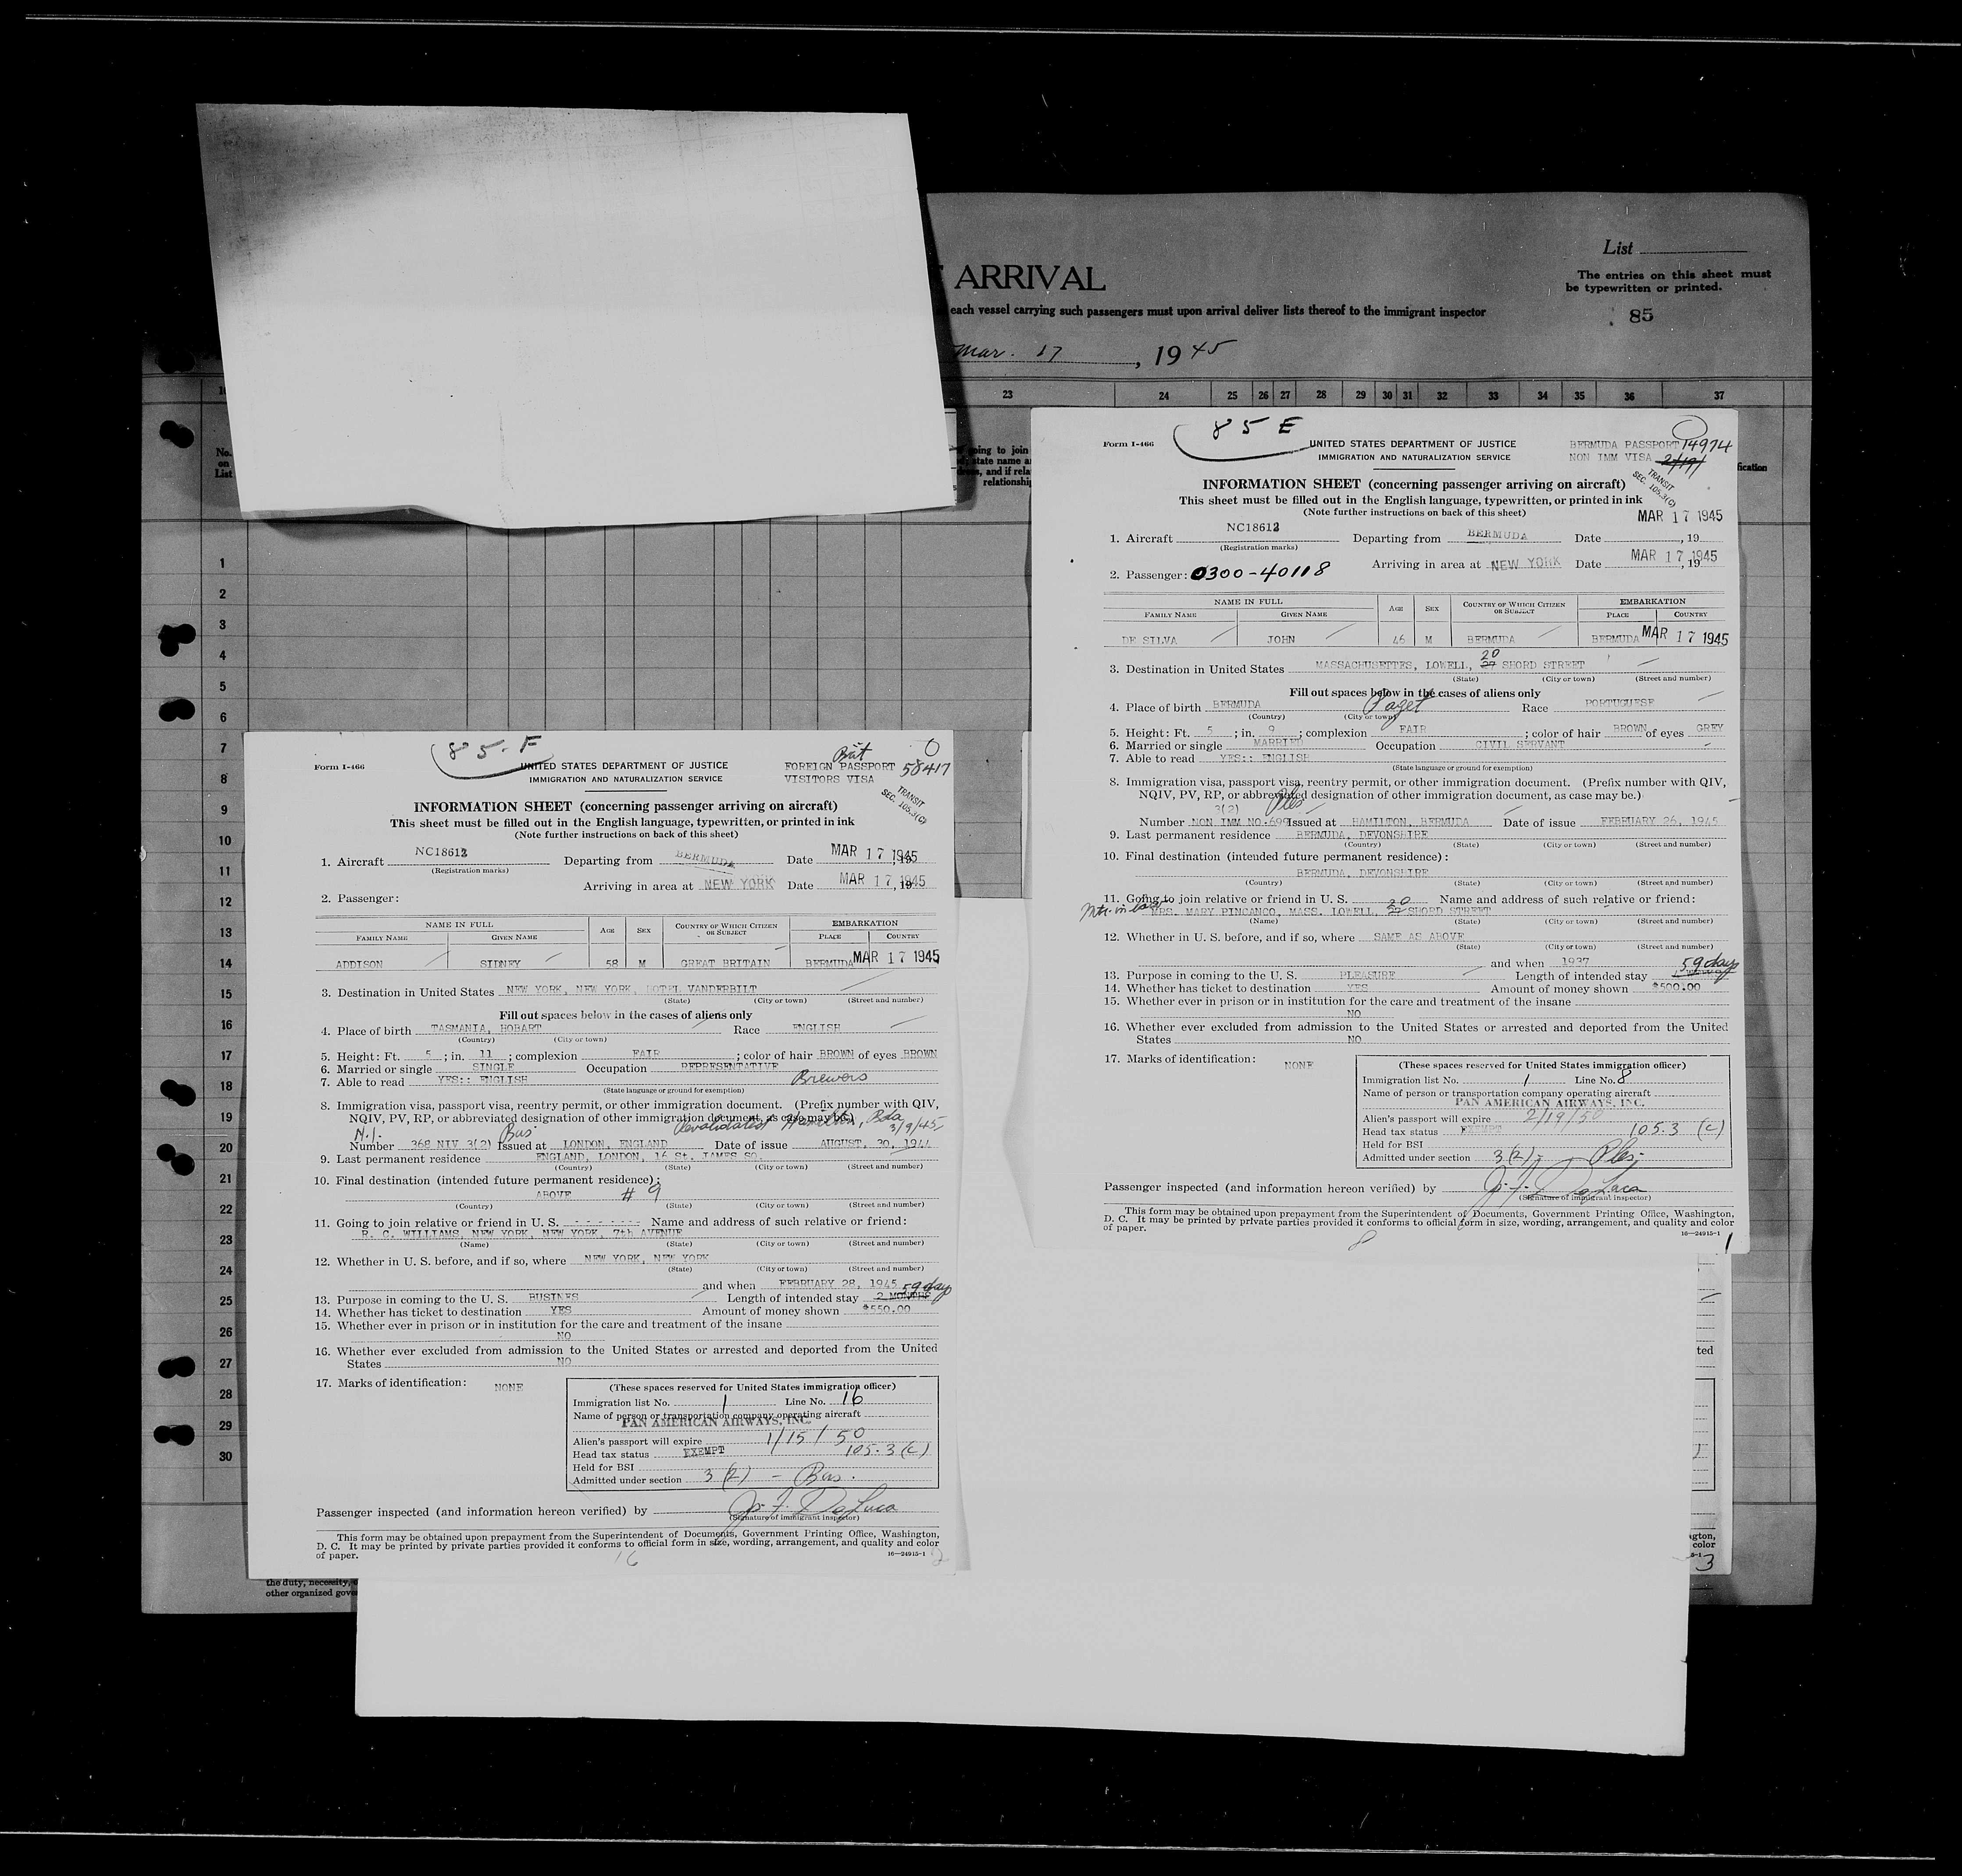 List
ARRIVAL
The entries on this sheet must
be typewritten or printed.
each vessel carrying such passengers must upon arrival deliver lists thereof to the immigrant inspector
85
Mar. 17, 1945
23 24 25 26 27 28 29 30 31 32 33 34 35 36 37
No.
on
List
going to join
state name
and if rela
relationship
1
2
3
4
5
6
7
8
9
10
11
12
13
14
15
16
17
18
19
20
21
22
23
24
25
26
27
28
29
30
85-F
Form I-466
UNITED STATES DEPARTMENT OF JUSTICE
IMMIGRATION AND NATURALIZATION SERVICE
Brit
FOREIGN PASSPORT 58417
VISITORS VISA
TRANSIT
SEC. 105.3(C)
INFORMATION SHEET (concerning passenger arriving on aircraft)
This sheet must be filled out in the English language, typewritten, or printed in ink
(Note further instructions on back of this sheet)
1. Aircraft NC18612 Departing from BERMUDA Date MAR 17 1945
(Registration marks)
Arriving in area at NEW YORK Date MAR 17 1945
2. Passenger:
NAME IN FULL AGE SEX COUNTRY OF WHICH CITIZEN OR SUBJECT EMBARKATION
FAMILY NAME GIVEN NAME PLACE COUNTRY
ADDISON SIDNEY 58 M GREAT BRITAIN BERMUDA MAR 17 1945
3. Destination in United States NEW YORK, NEW YORK, HOTEL VANDERBILT
(State) (City or town) (Street and number)
Fill out spaces below in the cases of aliens only
4. Place of birth TASMANIA, HOBART Race ENGLISH
(Country) (City or town)
5. Height: Ft. 5; in. 11; complexion FAIR; color of hair BROWN of eyes BROWN
6. Married or single SINGLE Occupation REPRESENTATIVE
7. Able to read YES:: ENGLISH Brewers
(State language or ground for exemption)
8. Immigration visa, passport visa, reentry permit, or other immigration document. (Prefix number with QIV,
NQIV, PV, RP, or abbreviated designation of other immigration document, as case may be.)
Revalidated Hamilton, Bda 3/9/45
N.I. Bus
Number 368 NIV 3(2) Issued at LONDON, ENGLAND Date of issue AUGUST, 30, 1944
9. Last permanent residence ENGLAND, LONDON, 16 St. JAMES SQ.
(Country) (State) (City or town) (Street and number)
10. Final destination (intended future permanent residence):
ABOVE # 9
(Country) (State) (City or town) (Street and number)
11. Going to join relative or friend in U. S. - - - - - - - Name and address of such relative or friend:
R. C. WILLIAMS, NEW YORK, NEW YORK, 7th AVENUE
(Name) (State) (City or town) (Street and number)
12. Whether in U. S. before, and if so, where NEW YORK, NEW YORK
(State) (City or town) (Street and number)
and when FEBRUARY 28, 1945
59 days
13. Purpose in coming to the U. S. BUSINES Length of intended stay 2 MONTHS
14. Whether has ticket to destination YES Amount of money shown $550.00
15. Whether ever in prison or in institution for the care and treatment of the insane
NO
16. Whether ever excluded from admission to the United States or arrested and deported from the United
States NO
17. Marks of identification: NONE
(These spaces reserved for United States immigration officer)
Immigration list No. 1 Line No. 16
Name of person or transportation company operating aircraft
PAN AMERICAN AIRWAYS, INC.
Alien's passport will expire 1/15/50
Head tax status EXEMPT 105.3 (c)
Held for BSI
Admitted under section 3 (2) - Bus.
Passenger inspected (and information hereon verified) by J. F. DeLuca
(Signature of immigrant inspector)
This form may be obtained upon prepayment from the Superintendent of Documents, Government Printing Office, Washington,
D. C. It may be printed by private parties provided it conforms to official form in size, wording, arrangement, and quality and color
of paper.
16—24915-1
16
2
the duty, necessity,
other organized gove
85 E
Form I-466
UNITED STATES DEPARTMENT OF JUSTICE
IMMIGRATION AND NATURALIZATION SERVICE
BERMUDA PASSPORT 14974
NON IMM VISA 2/19/
TRANSIT
SEC. 105.3(C)
INFORMATION SHEET (concerning passenger arriving on aircraft)
This sheet must be filled out in the English language, typewritten, or printed in ink
(Note further instructions on back of this sheet)
1. Aircraft NC18612 Departing from BERMUDA Date MAR 17 1945, 19
(Registration marks)
Arriving in area at NEW YORK Date MAR 17 1945
2. Passenger: 0300-40118
NAME IN FULL AGE SEX COUNTRY OF WHICH CITIZEN OR SUBJECT EMBARKATION
FAMILY NAME GIVEN NAME PLACE COUNTRY
DE SILVA JOHN 46 M BERMUDA BERMUDA MAR 17 1945
20
3. Destination in United States MASSACHUSETTES, LOWELL, 27 SHORD STREET
(State) (City or town) (Street and number)
Fill out spaces below in the cases of aliens only
4. Place of birth BERMUDA Paget Race PORTUGUESE
(Country) (City or town)
5. Height: Ft. 5; in. 9; complexion FAIR; color of hair BROWN of eyes GREY
6. Married or single MARRIED Occupation CIVIL SERVANT
7. Able to read YES:: ENGLISH
(State language or ground for exemption)
8. Immigration visa, passport visa, reentry permit, or other immigration document. (Prefix number with QIV,
NQIV, PV, RP, or abbreviated designation of other immigration document, as case may be.)
3(2) Ples
Number NON IMM NO.699 Issued at HAMILTON, BERMUDA Date of issue FEBRUARY 26, 1945
9. Last permanent residence BERMUDA, DEVONSHIRE
(Country) (State) (City or town) (Street and number)
10. Final destination (intended future permanent residence):
BERMUDA, DEVONSHIRE
(Country) (State) (City or town) (Street and number)
11. Going to join relative or friend in U. S. Name and address of such relative or friend:
20
Mtr. in law MRS. MARY PINCANCO, MASS. LOWELL, 27 SHORD STREET
(Name) (State) (City or town) (Street and number)
12. Whether in U. S. before, and if so, where SAME AS ABOVE
(State) (City or town) (Street and number)
and when 1937
59 days
13. Purpose in coming to the U. S. PLEASURE Length of intended stay
14. Whether has ticket to destination YES Amount of money shown $500.00
15. Whether ever in prison or in institution for the care and treatment of the insane
NO
16. Whether ever excluded from admission to the United States or arrested and deported from the United
States NO
17. Marks of identification: NONE
(These spaces reserved for United States immigration officer)
Immigration list No. 1 Line No. 8
Name of person or transportation company operating aircraft
PAN AMERICAN AIRWAYS, INC.
Alien's passport will expire 2/19/50
Head tax status EXEMPT 105.3 (c)
Held for BSI
Admitted under section 3(2)- Ples.
Passenger inspected (and information hereon verified) by J. F. DeLuca
(Signature of immigrant inspector)
This form may be obtained upon prepayment from the Superintendent of Documents, Government Printing Office, Washington,
D. C. It may be printed by private parties provided it conforms to official form in size, wording, arrangement, and quality and color
of paper.
16—24915-1
8
1
ted
gton,
color
3